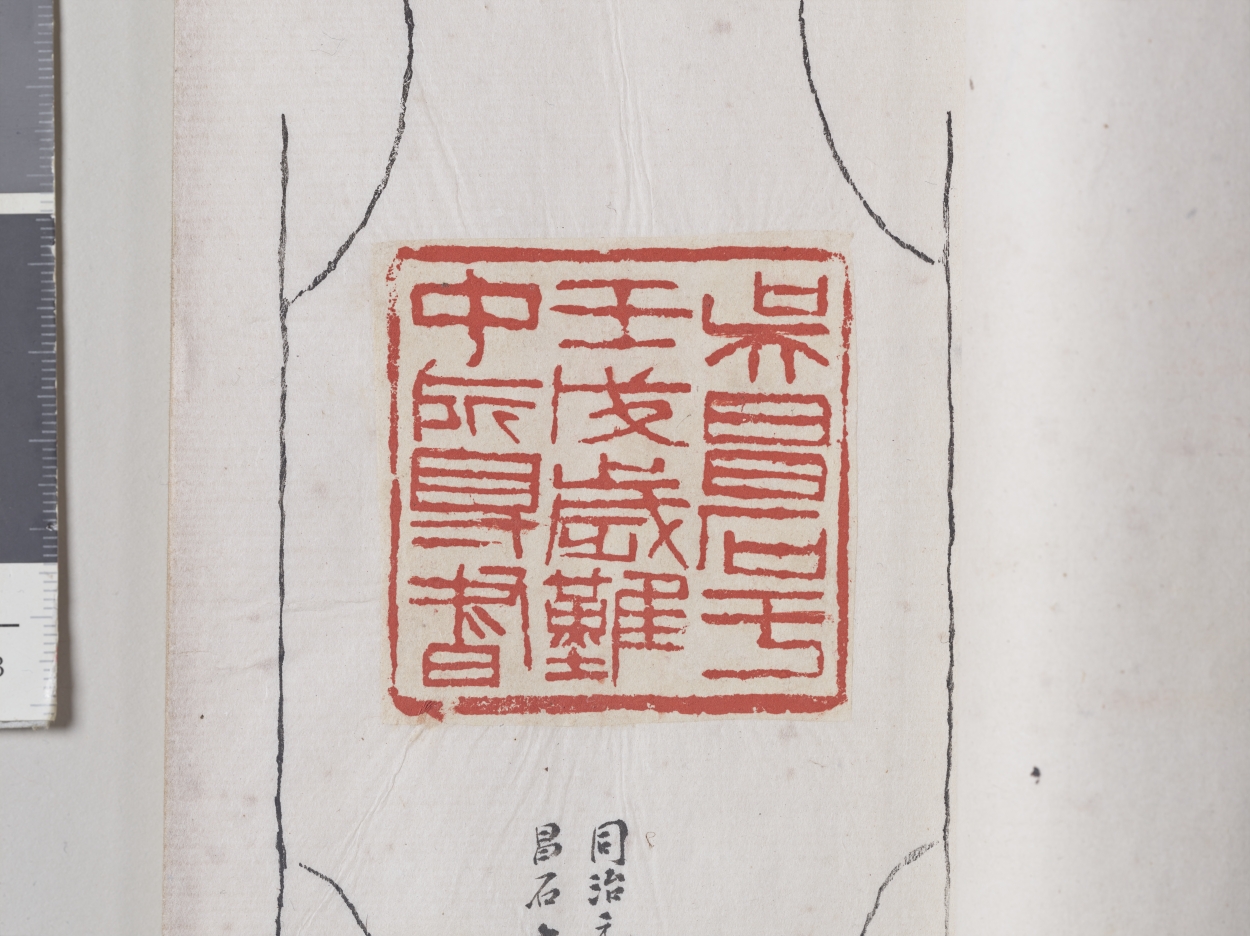 吳昌石于
壬戌歲難
中所得書
同治
昌石